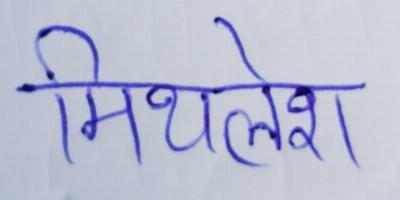 मिथलेश